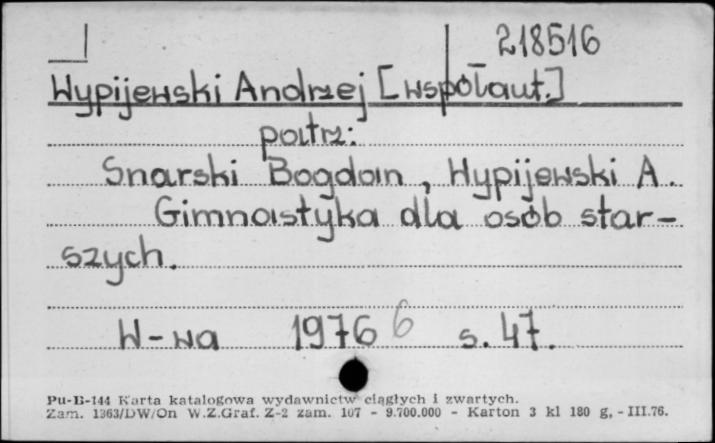 218516
Wypijewski Andrzej [współaut.]
patrz:
Snarski Bogdan, Wypijewski A.
Gimnastyka dla osób star-
szych.
W-wa 1976 6 s. 47.
Pu-B-144 Karta katalogowa wydawnictw ciągłych i zwartych.
Zam. 1363/DW/On W.Z.Graf. Z-2 zam. 107 - 9.700.000 - Karton 3 kl 180 g. - III.76.